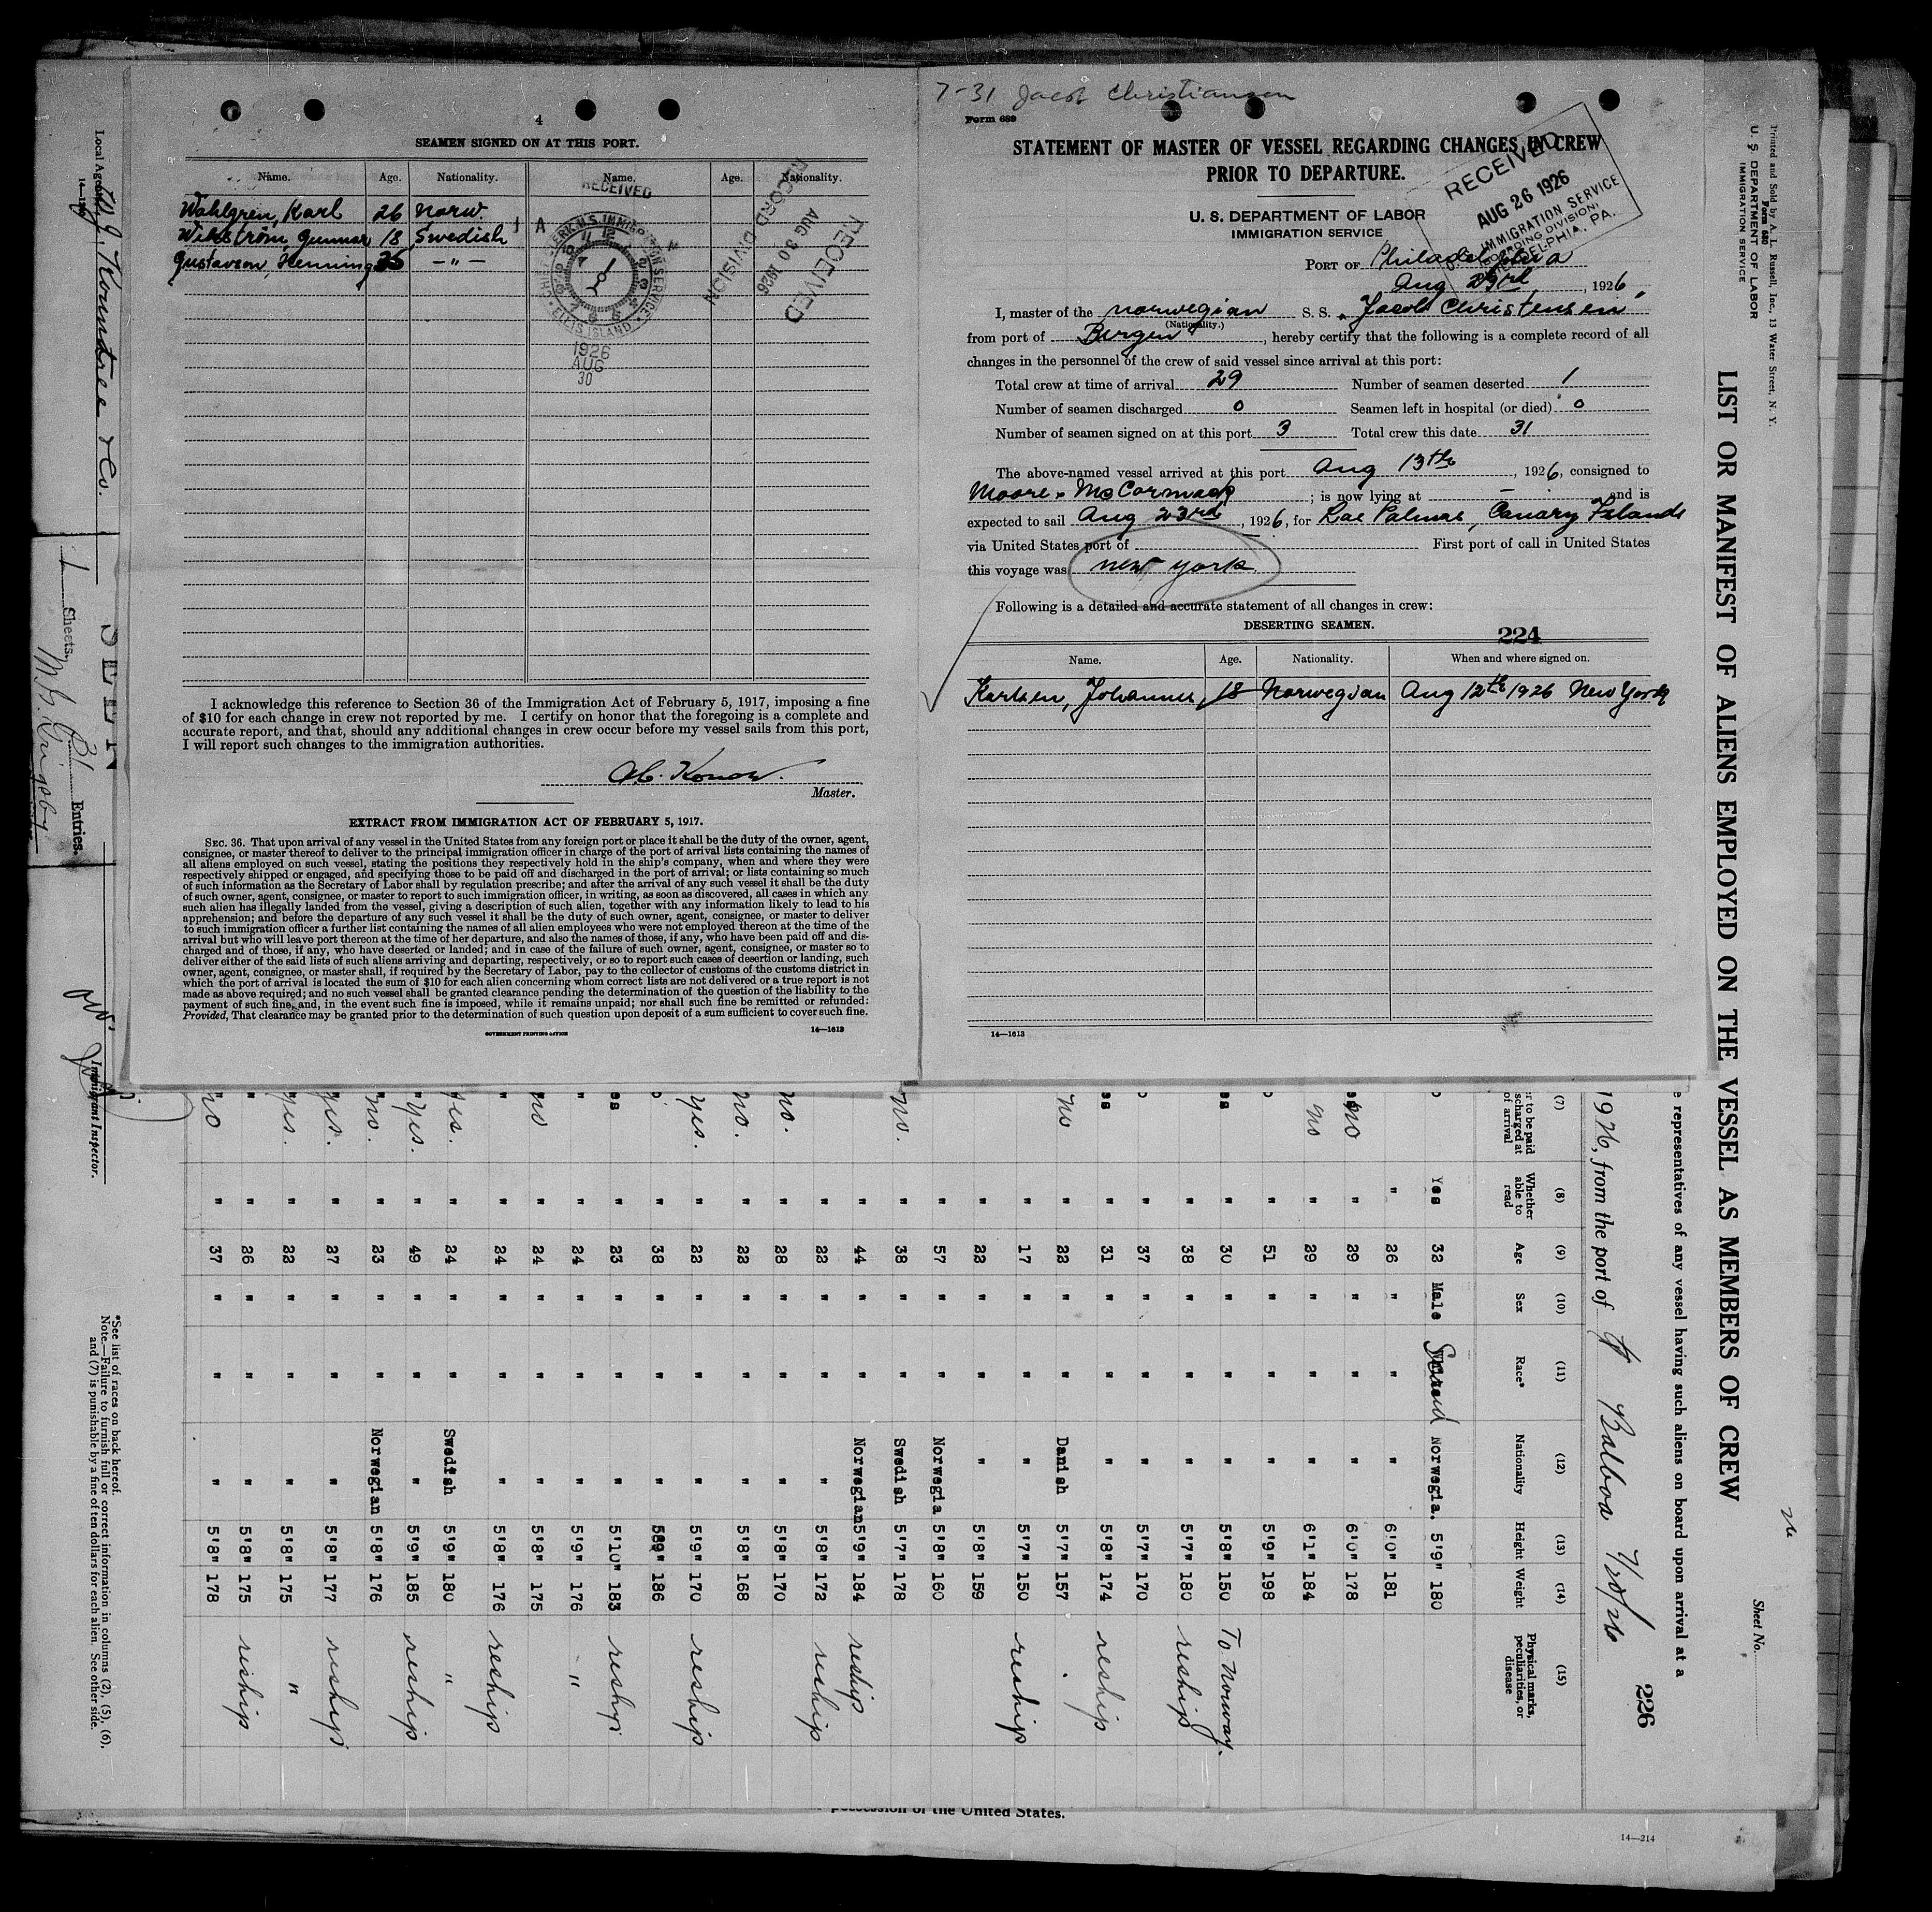 4
SEAMEN SIGNED ON AT THIS PORT.
Name. Age. Nationality. Name. Age. Nationality.
Wahlgren, Karl 26 Norw.
Wikström, Gunnar 18 Swedish
Gustavson, Henning — " —
RECEIVED
CHIEF CLERK U.S. IMMIGRATION SERVICE
ELLIS ISLAND
1926
AUG
30
RECEIVED
AUG 30 1926
RECORD DIVISION
I acknowledge this reference to Section 36 of the Immigration Act of February 5, 1917, imposing a fine
of $10 for each change in crew not reported by me. I certify on honor that the foregoing is a complete and
accurate report, and that, should any additional changes in crew occur before my vessel sails from this port,
I will report such changes to the immigration authorities.
Konow.
Master.
EXTRACT FROM IMMIGRATION ACT OF FEBRUARY 5, 1917.
SEC. 36. That upon arrival of any vessel in the United States from any foreign port or place it shall be the duty of the owner, agent,
consignee, or master thereof to deliver to the principal immigration officer in charge of the port of arrival lists containing the names of
all aliens employed on such vessel, stating the positions they respectively hold in the ship's company, when and where they were
respectively shipped or engaged, and specifying those to be paid off and discharged in the port of arrival; or lists containing so much
of such information as the Secretary of Labor shall by regulation prescribe; and after the arrival of any such vessel it shall be the duty
of such owner, agent, consignee, or master to report to such immigration officer, in writing, as soon as discovered, all cases in which any
such alien has illegally landed from the vessel, giving a description of such alien, together with any information likely to lead to his
apprehension; and before the departure of any such vessel it shall be the duty of such owner, agent, consignee, or master to deliver
to such immigration officer a further list containing the names of all alien employees who were not employed thereon at the time of the
arrival but who will leave port thereon at the time of her departure, and also the names of those, if any, who have been paid off and dis-
charged and of those, if any, who have deserted or landed; and in case of the failure of such owner, agent, consignee, or master so to
deliver either of the said lists of such aliens arriving and departing, respectively, or so to report such cases of desertion or landing, such
owner, agent, consignee, or master shall, if required by the Secretary of Labor, pay to the collector of customs of the customs district in
which the port of arrival is located the sum of $10 for each alien concerning whom correct lists are not delivered or a true report is not
made as above required; and no such vessel shall be granted clearance pending the determination of the question of the liability to the
payment of such fine, and, in the event such fine is imposed, while it remains unpaid; nor shall such fine be remitted or refunded:
Provided, That clearance may be granted prior to the determination of such question upon deposit of a sum sufficient to cover such fine.
GOVERNMENT PRINTING OFFICE 14—1613
7-31 Jacob Christiansen
Form 689
STATEMENT OF MASTER OF VESSEL REGARDING CHANGES IN CREW
PRIOR TO DEPARTURE.
U. S. DEPARTMENT OF LABOR
IMMIGRATION SERVICE
RECEIVED
AUG 26 1926
IMMIGRATION SERVICE
BOARDING DIVISION
PHILADELPHIA, PA.
PORT OF Philadelphia
Aug 23rd, 1926
I, master of the norwegian S. S. "Jacob Christensen"
(Nationality.)
from port of Bergen, hereby certify that the following is a complete record of all
changes in the personnel of the crew of said vessel since arrival at this port:
Total crew at time of arrival 29 Number of seamen deserted 1
Number of seamen discharged 0 Seamen left in hospital (or died) 0
Number of seamen signed on at this port 3 Total crew this date 31
The above-named vessel arrived at this port Aug 13th, 1926, consigned to
Moore & McCormack; is now lying at — and is
expected to sail Aug 23rd, 1926, for Las Palmas, Canary Islands
via United States port of First port of call in United States
this voyage was new york
Following is a detailed and accurate statement of all changes in crew:
DESERTING SEAMEN.
224
Name. Age. Nationality. When and where signed on.
Karlsen, Johannes, 18 Norwegian Aug 12th 1926 New York
14—1613
Printed and Sold by A. L. Russell, Inc., 13 Water Street, N. Y.
Form 689
U. S. DEPARTMENT OF LABOR
IMMIGRATION SERVICE
LIST OR MANIFEST OF ALIENS EMPLOYED ON THE VESSEL AS MEMBERS OF CREW
Sheet No.
226
representatives of any vessel having such aliens on board upon arrival at a
1926, from the port of Balboa 7/20/26
(7) (8) (9) (10) (11) (12) (13) (14) (15)
to be paid discharged at of arrival Whether able to read Age Sex Race* Nationality Height Weight Physical marks, peculiarities, or disease
Yes 32 Male Scand Norwegia. 5'9" 180
" 26 " " " 6'0" 181
no " 29 " " " 6'0" 178
no " 29 " " " 6'1" 184
" 51 " " " 5'9" 198
" 30 " " " 5'8" 150 To Norway.
" 38 " " " 5'7" 180 reship
" 37 " " " 5'7" 170
" 31 " " " 5'8" 174 reship
no " 22 " " Danish 5'7" 157
" 17 " " " 5'7" 150 reship
" 22 " " " 5'8" 159
" 57 " " Norwegia 5'8" 160
no. " 38 " " Swedish 5'7" 178
" 44 " " Norwegian 5'9" 184 reship
" 22 " " " 5'8" 172 reship
no. " 28 " " " 5'8" 170
no. " 22 " " " 5'8" 168
yes. " 22 " " " 5'9" 170 reship
" 38 " " " 186
" 23 " " " 5'10" 183 reship
" 24 " " " 5'9" 176 "
no " 24 " " " 5'8" 175
" " 24 " " " 5'8" 176 reship
yes. " 24 " " Swedish 5'9" 180 "
" yes. " 49 " " " 5'9" 185 reship
" no. " 23 " " Norwegian 5'8" 176
yes. " 27 " " " 5'8" 177 reship
yes. " 22 " " " 5'8" 175 "
" " 26 " " " 5'8" 175 reship
" no " 37 " " " 5'8" 178
*See list of races on back hereof.
Note.—Failure to furnish full or correct information in columns (2), (5), (6),
and (7) is punishable by a fine of ten dollars for each alien. See other side.
Local Agents
Rountree & Co.
1 Sheets.
31 Entries.
Immigrant Inspector.
possession of the United States.
14—214